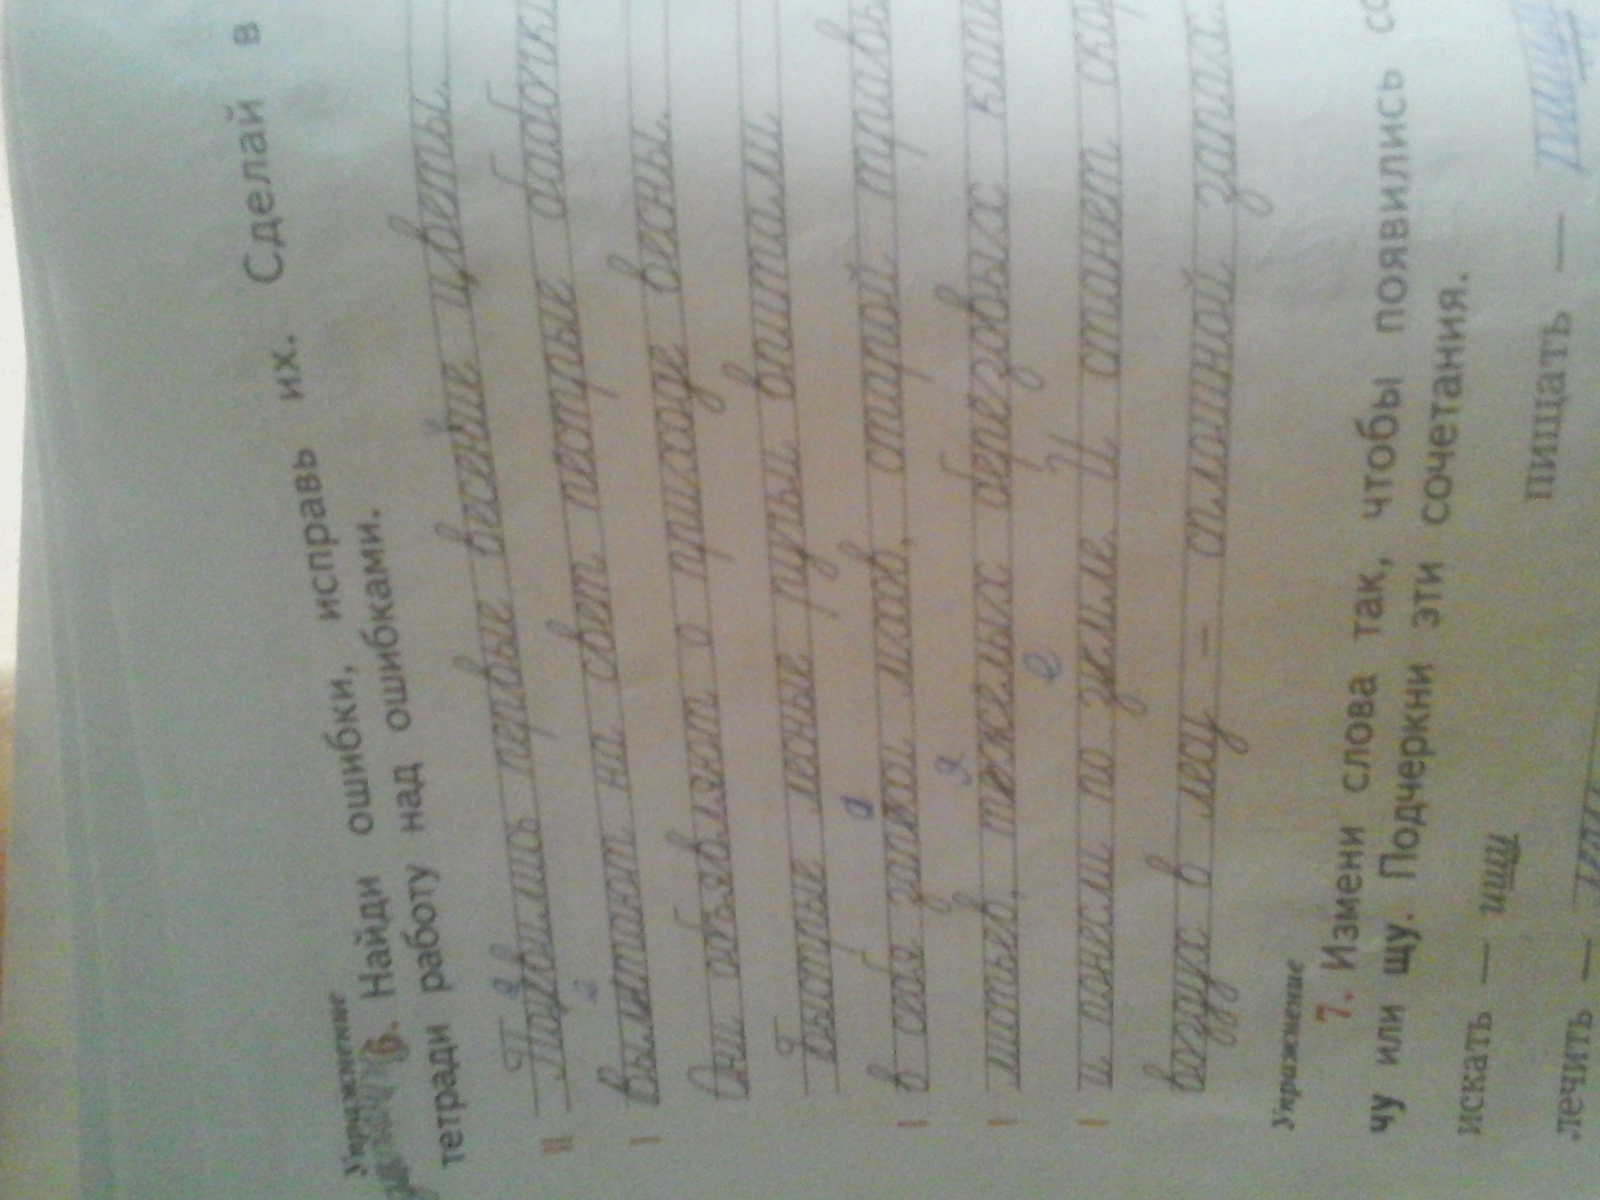 Упражнение
6. Найди ошибки, исправь их. Сделай в
тетради работу над ошибками.
Появились первые весение цветы.
Вылитают на свет пестрые бабочки
Они объявляют о приходе весны.
Быстрые лесные ручьи впитали
в себя запахи мхов, старой травы
листьев, тежелых березовых
и понесли по зимле. И станет
воздух в лесу – сплошной запах.
Упражнение
7. Измени слова так, чтобы появились
чу или щу. Подчеркни эти сочетания.
искать — ищу пищать — пищу
лечить —